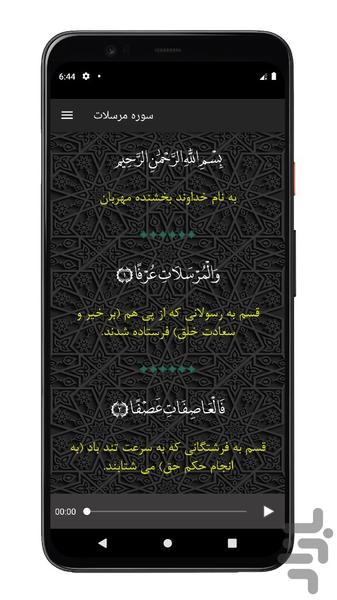 6:44
سوره مرسلات
بِسْمِ اللَّهِ الرَّحْمَٰنِ الرَّحِيمِ
به نام خداوند بخشنده مهربان
وَالْمُرْسَلَاتِ عُرْفًا ﴿١﴾
قسم به رسولانی که از پی هم (بر خیر و
سعادت خلق) فرستاده شدند.
فَالْعَاصِفَاتِ عَصْفًا ﴿٢﴾
قسم به فرشتگانی که به سرعت تند باد (به
انجام حکم حق) می شتابند.
00:00
بازار